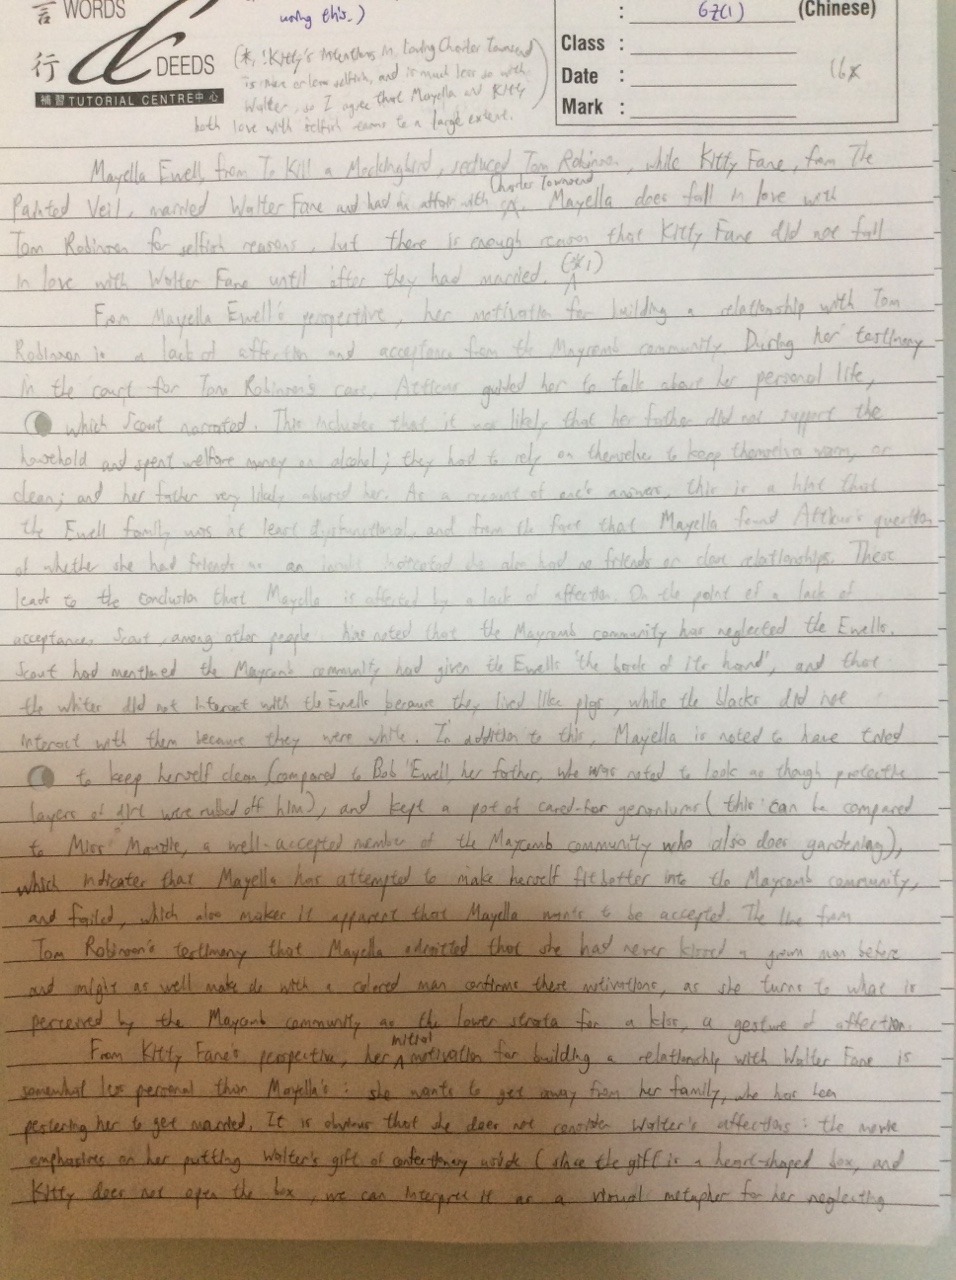 言 WORDS
using this.)
: 6Z(1) (Chinese)
行 & DEEDS
Class :
Date :
Mark :
補習 TUTORIAL CENTRE 中心
(*1 Kitty's intentions in loving Charles Townsend
is more or less selfish, and is much less so with
Walter, so I agree that Mayella and Kitty
both love with selfish reasons to a large extent.)
16
Mayella Ewell, from To Kill a Mockingbird, seduced Tom Robinson, while Kitty Fane, from The
Charles Townsend
Painted Veil, married Walter Fane and had an affair with Mayella does fall in love with
Tom Robinson for selfish reasons, but there is enough reason that Kitty Fane did not fall
in love with Walter Fane until after they had married. (*1)
From Mayella Ewell's perspective, her motivation for building a relationship with Tom
Robinson is a lack of affection and acceptance from the Maycomb community. During her testimony
in the court for Tom Robinson's case, Atticus guided her to talk about her personal life,
which Scout narrated. This includes that it was likely that her father did not support the
household and spent welfare money on alcohol; they had to rely on themselves to keep themselves warm, or
clean; and her father very likely abused her. As a account of one's answers, this is a hint that
the Ewell family was at least dysfunctional, and from the fact that Mayella found Atticus's question
of whether she had friends as an insult indicated she also had no friends or close relationships. These
leads to the conclusion that Mayella is affected by a lack of affection. On the point of a lack of
acceptance, Scout, among other people, has noted that the Maycomb community has neglected the Ewells.
Scout had mentioned the Maycomb community had given the Ewells 'the back of its hand', and that
the whites did not interact with the Ewells because they lived like pigs, while the blacks did not
interact with them because they were white. In addition to this, Mayella is noted to have tried
to keep herself clean (compared to Bob Ewell, her father, who was noted to look as though protective
layers of dirt were rubbed off him), and kept a pot of cared-for geraniums (this can be compared
to Miss Maudie, a well-accepted member of the Maycomb community who also does gardening),
which indicates that Mayella has attempted to make herself fit better into the Maycomb community,
and failed, which also makes it apparent that Mayella wants to be accepted. The line from
Tom Robinson's testimony that Mayella admitted that she had never kissed a grown man before
and might as well make do with a colored man confirms these motivations, as she turns to what is
perceived by the Maycomb community as the lower strata for a kiss, a gesture of affection.
initial
From Kitty Fane's perspective, her motivation for building a relationship with Walter Fane is
somewhat less personal than Mayella's: she wants to get away from her family, who has been
pestering her to get married. It is obvious that she does not consider Walter's affections: the movie
emphasizes on her putting Walter's gift of confectionary aside (since the gift is a heart-shaped box, and
Kitty does not open the box, we can interpret it as a visual metaphor for her neglecting